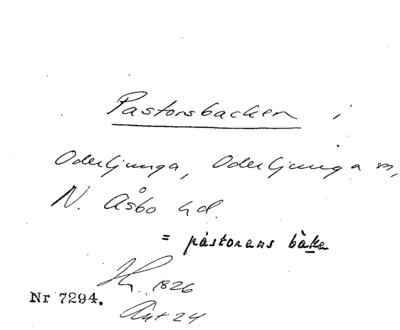 Pastorsbacken i
Oderljunga, Oderljunga sn,
N. Åsbo hd.
= påstorens bàke
1826
Nr 7294.
Ant 24